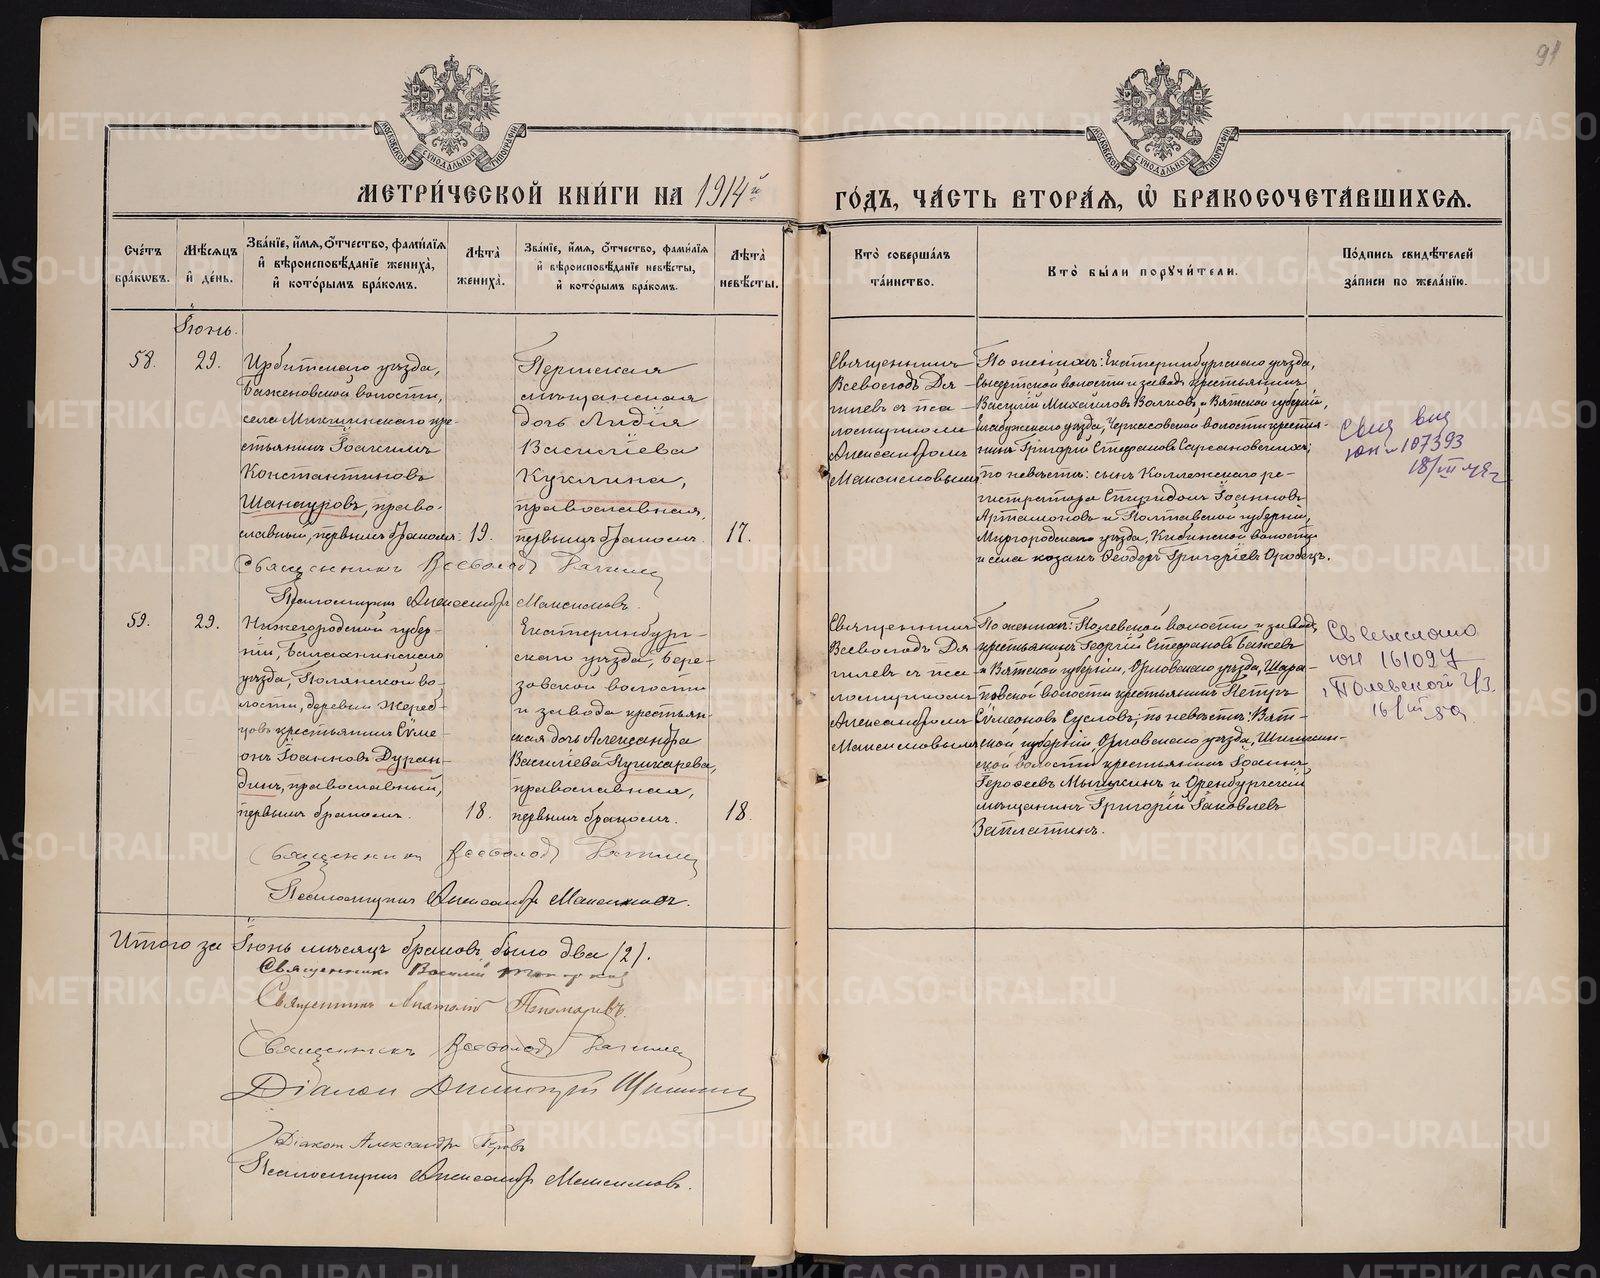 91
МОСКОВСКОЙ СѴНОДАЛЬНОЙ ТИПОГРАФІИ
МОСКОВСКОЙ СѴНОДАЛЬНОЙ ТИПОГРАФІИ
МЕТРИ́ЧЕСКОЙ КНИ́ГИ НА 1914й
ГО́ДЪ, ЧА́СТЬ ВТОРА́Ѧ, Ѽ БРАКОСОЧЕТА́ВШИХСѦ.
Сче́тъ бра́кѡвъ.
Мѣ́сѧцъ и҆ де́нь.
Зва́нїе, и҆́мѧ, ѻ҆́тчество, фамилїѧ и҆ вѣроисповѣ́данїе жениха̀, и҆ кото́рымъ бра́комъ.
Лѣта̀ жениха̀.
Зва́нїе, и҆́мѧ, ѻ҆́тчество, фами́лїѧ и҆ вѣроисповѣ́данїе невѣ́сты, и҆ кото́рымъ бра́комъ.
Лѣта̀ невѣ́сты.
Кто̀ соверша́лъ та́инство.
Кто̀ бы́ли порꙋчи́тели.
По́дпись свидѣ́телей за́писи по жела́нїю.
Іюнь.
58.
29.
Ирбитскаго уѣзда,
Баженовской волости,
села
стьянинъ Іоакимъ
Константиновъ
Шанауровъ, право-
славный, первымъ бракомъ.
19.
Пермская
мѣщанская
дочь Лидія
Васильева
Куклина,
православная,
первымъ бракомъ.
17.
Священникъ
Всеволодъ Дя-
гилевъ съ пса-
ломщикомъ
Александромъ
Максимовымъ
По женихѣ: Екатеринбургскаго уѣзда,
Сысертской волости и завода крестьянинъ
Василій Михайловъ Волковъ и Вятской губерніи,
Елабужскаго уѣзда, Черкасовской волости крестья-
нинъ Григорій Стефановъ
по невѣстѣ: сынъ Коллежскаго ре-
гистратора Спиридонъ Іоанновъ
Артамоновъ и Полтавской губерніи,
Миргородскаго уѣзда, Кибинской волости
и села козакъ Ѳеодоръ Григоріевъ
107393
Священникъ Всеволодъ Дягилевъ
Псаломщикъ Александръ Максимовъ.
59.
29.
Нижегородской губер-
ніи, Балахнинскаго
уѣзда, Полянской во-
лости, деревни Жереб-
цовъ крестьянинъ Сѵме-
онъ Іоанновъ Дуран-
динъ, православный,
первымъ бракомъ.
18.
Екатеринбург-
скаго уѣзда, Бере-
зовской волости
и завода крестьян-
ская дочь Александра
Васильева Пушкарева,
православная,
первымъ бракомъ.
18.
Священникъ
Всеволодъ Дя-
гилевъ съ пса-
ломщикомъ
Александромъ
Максимовымъ
По женихѣ: Полевской волости и завода
крестьянинъ Георгій Стефановъ Бажевъ
и Вятской губерніи, Орловскаго уѣзда, Шара-
повской волости крестьянинъ Петръ
Сѵмеоновъ Сусловъ; по невѣстѣ: Вят-
ской губерніи, Орловскаго уѣзда,
ской волости крестьянинъ Іоаннъ
Героѳеевъ Мышкинъ и Оренбургскій
мѣщанинъ Григорій Іаковлевъ
Заплатинъ.
161097
Полевской
Священникъ Всеволодъ Дягилевъ
Псаломщикъ Александръ Максимовъ.
Итого за Іюнь мѣсяцъ браковъ было два (2).
Священникъ Василій
Священникъ Анатолій Пономаревъ.
Священникъ Всеволодъ Дягилевъ
Діаконъ Димитрій
Діаконъ Александръ
Псаломщикъ Александръ Максимовъ.
METRIKI.GASO-URAL.RU